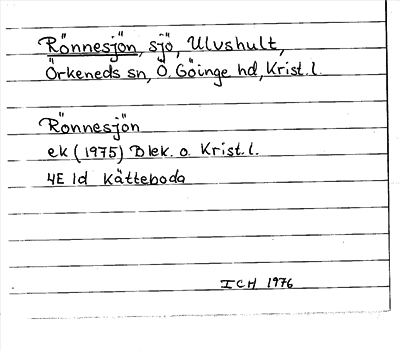 Rönnesjön, sjö, Ulvshult,
Örkeneds sn, Ö. Göinge hd, Krist. l.
Rönnesjön
ek (1975) Blek. o. Krist. l.
4E 1d Kätteboda
ICH 1976